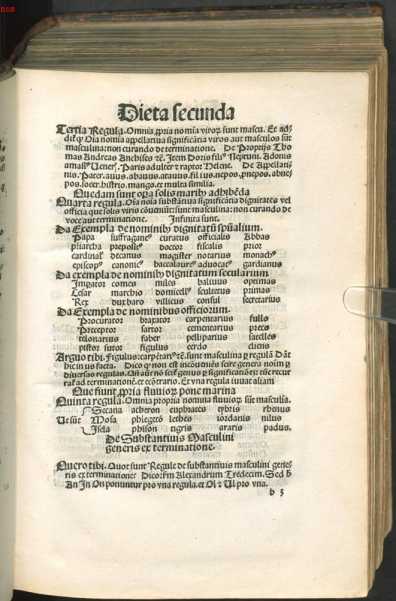 Dieta secunda
Tertia Regula. Omnia propria nomina virorum sunt mascu. Et
omnia nomina appellatiua significantia viros aut masculos sunt
masculina: non curando de terminatione. De Proprijs Tho
mas Andreas Anchises Item Doris filius Neptuni. Adonis
Veneris. Paris adulter et raptor Helene. De Appellati
nis. Pater. auus. abauus. atauus. filius. nepos. pnepos. abne
pos. socer. histrio. mango. et multa similia.
Quedam sunt opera solis maribus adhibenda
Quarta regula. Omnia noia substantiua significantia dignitates vel
officia que solis viris conueniunt: sunt masculina: non curando de
voce aut terminatione. Infinita sunt.
Da Exempla de nominibus dignitatum spualium.
Papa suffraganeus curatus officialis Abbas
priarcha prepositus doctor fiscalis prior
cardinalis decanus magister notarius monachus
episcopus canonicus baccalaureus aduocatus gardianus
Da exempla de nominibus dignitatum secularium
Imperator comes miles baliuus optimas
Cesar marchio domicellus scultetus primas
Rex dux baro villicus consul secretarius
Da Exempla de nominibus officiorum.
Procurator braxator carpentarius fullo
Preceptor sartor cementarius preco
telonarius faber pelliparius satelles
pistor sutor figulus cerdo cliens
Arguo tibi. Figulus: carpentarius sunt masculina per regulam Dant
Dico quod non est inconueniens fore genera nominum per
diuersas regulas.
Et vna regula iuuat aliam
Que sunt propria fluuiorum pone marina
Quinta regula. Omnia propria nomina fluuiorum sunt masculina.
Secana acheron euphrates tybris rhenus
Vt sunt Mosa phlegeton lethes iordanis nilus
Isida phison tigris araris padus.
De Substantiuis Masculini
generis ex terminatione.
Quero tibi. Quot sunt Regule de substantiuis masculini gene
ris ex terminatione? Dico: secundum Alexandrum Tredecim. Sed
An In On ponuntur pro vna regula. et Ol et Ul pro vna.
b 3